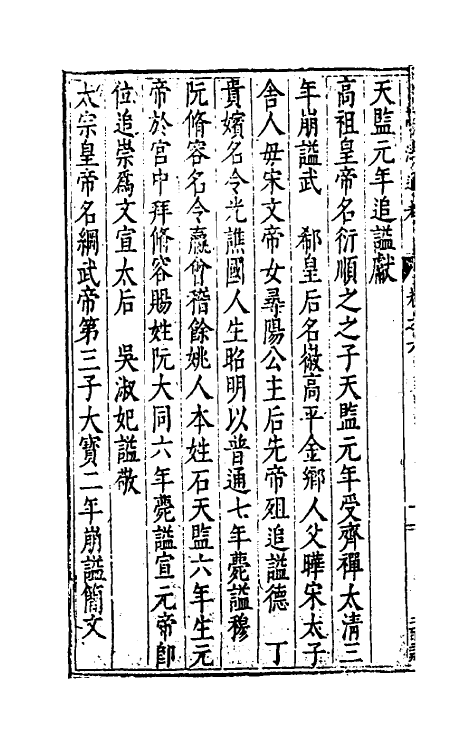 天監元年追謚獻
高祖皇帝名衍順之之子天監元年受齊禪太清三
年崩謚武　郗皇后名徽高平金鄉人父曄宋太子
舍人母宋文帝女尋陽公主后先帝殂追謚德　丁
貴嬪名令光譙國人生昭明以普通七年薨謚穆
阮脩容名令嬴會稽餘姚人本姓石天監六年生元
帝於宮中拜脩容賜姓阮大同六年薨謚宣元帝即
位追崇爲文宣太后　吳淑妃謚敬
太宗皇帝名綱武帝第三子大寶二年崩謚簡文